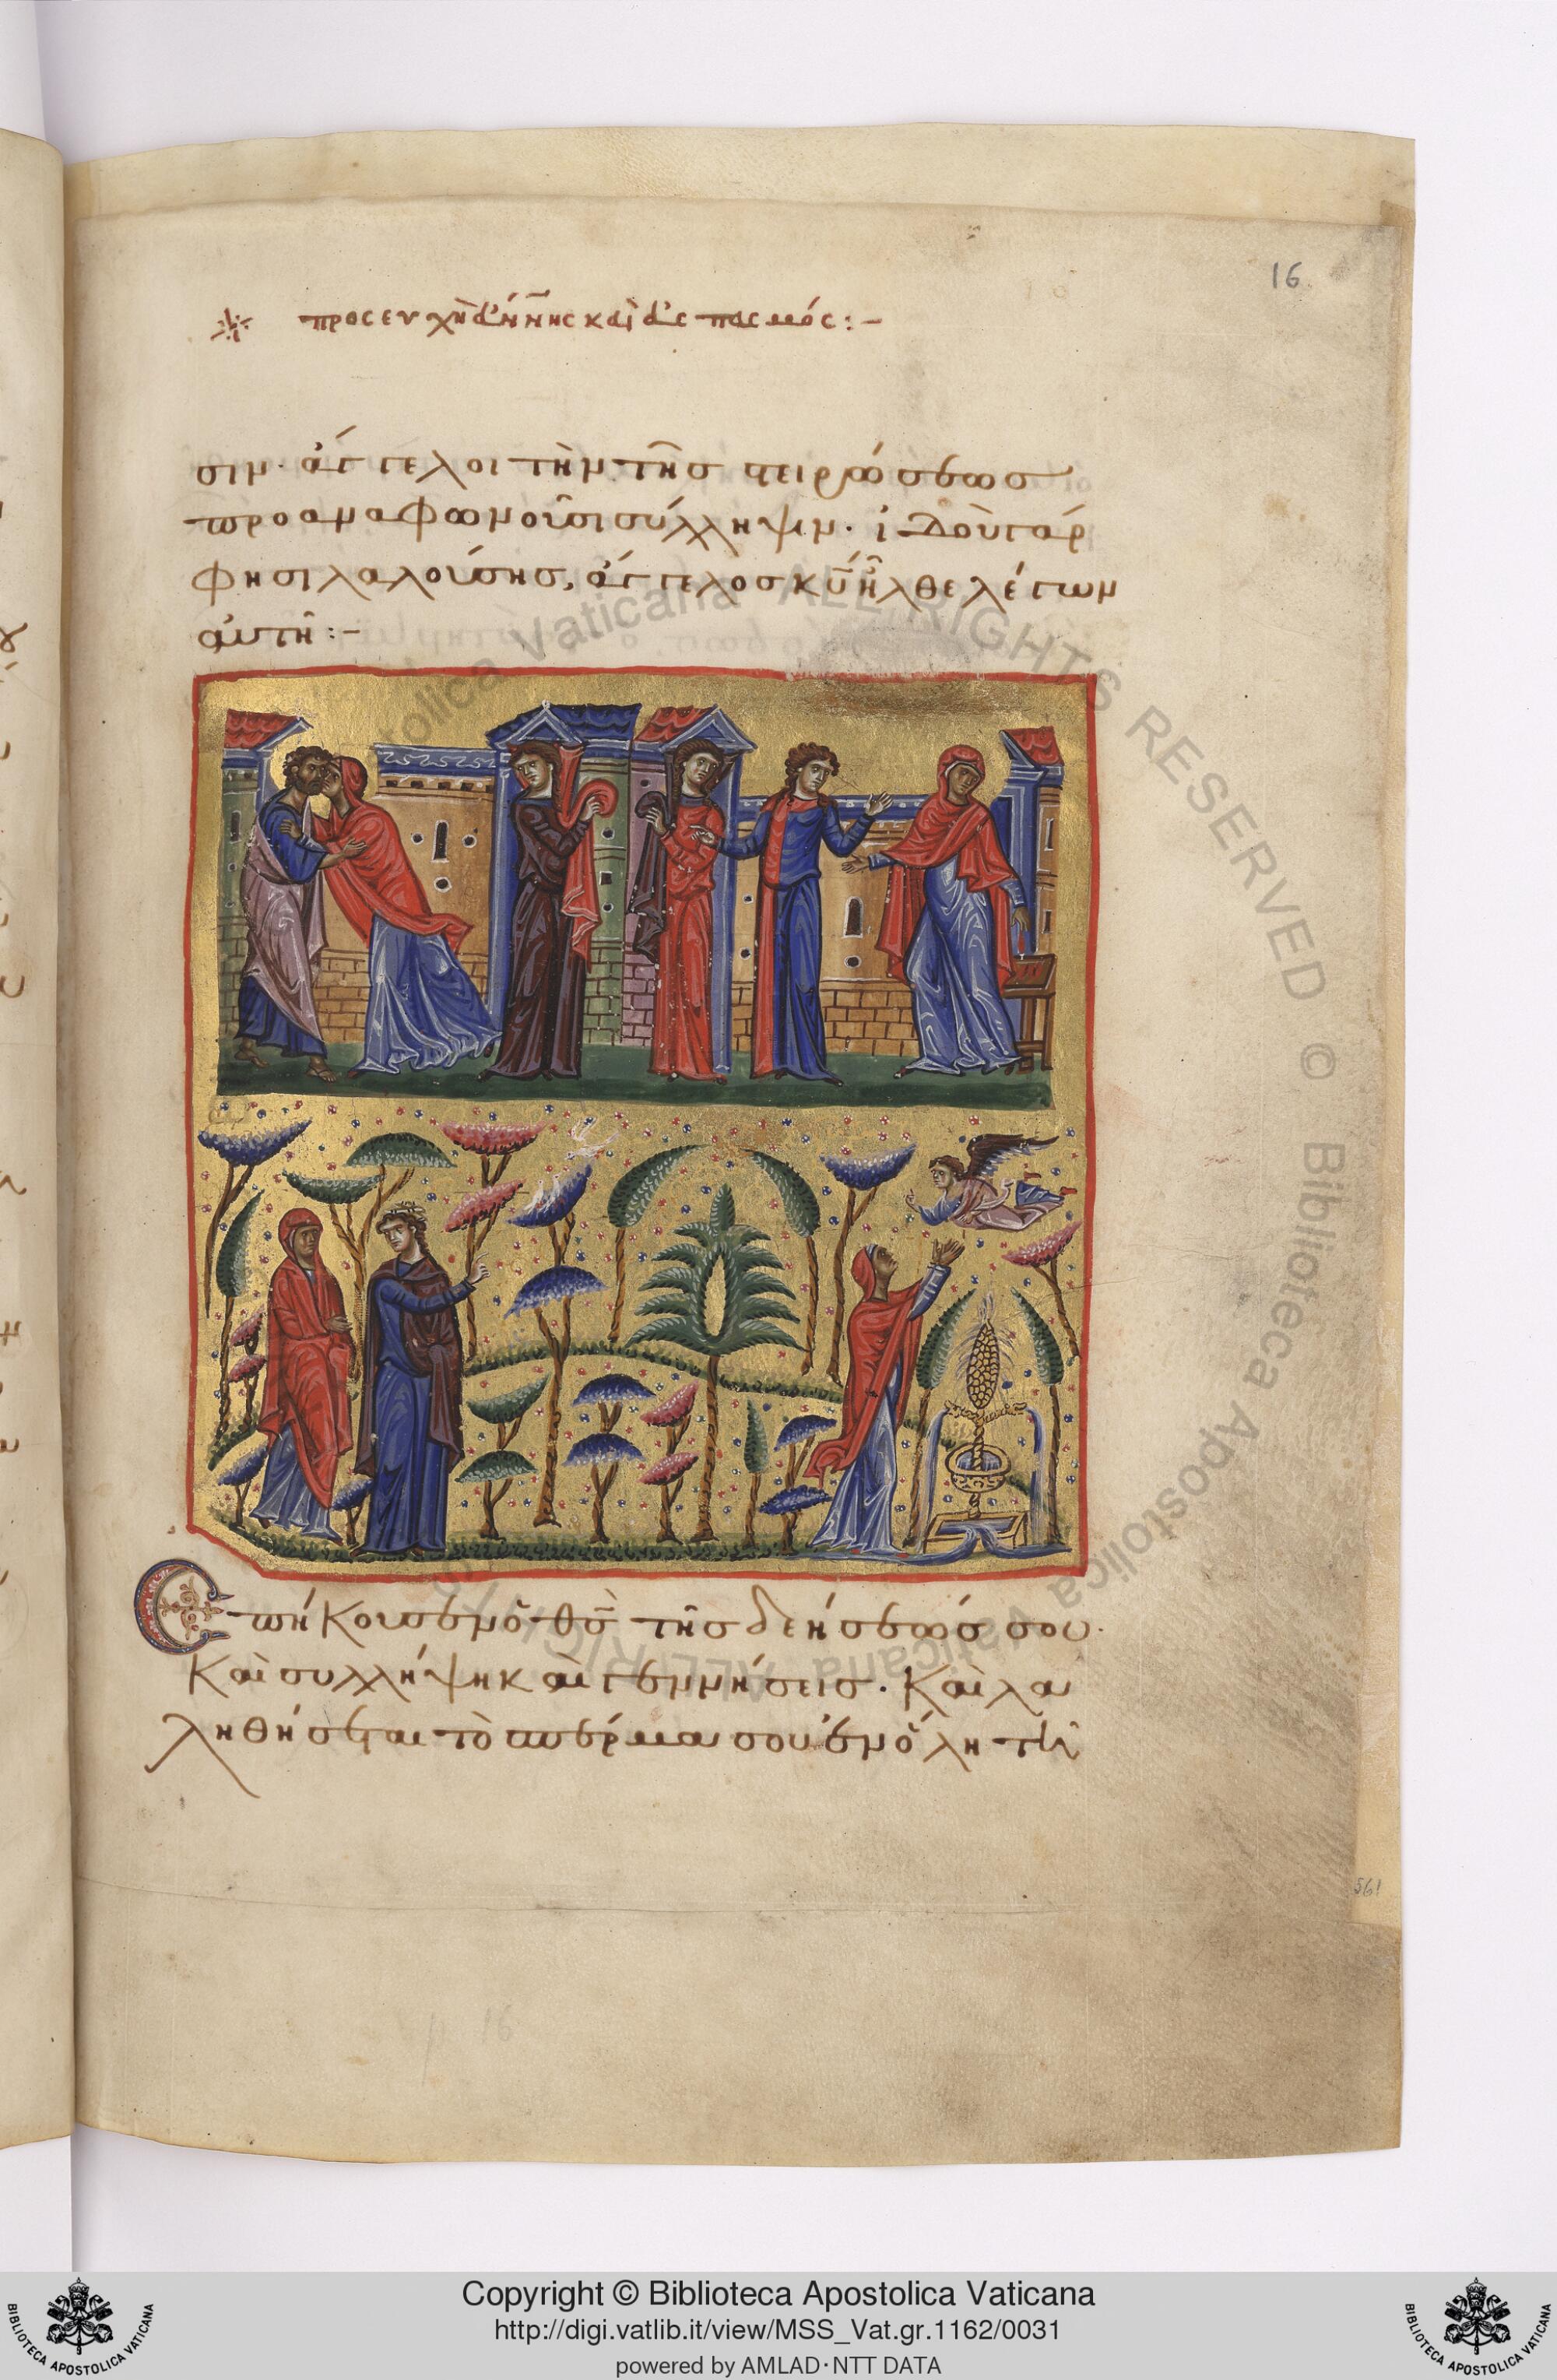 16
προσευχὴ ἄννης καὶ ἀσπασμός :–
σιν· ἄγγελοι τὴν τῆς στειρώσεως
προαναφωνοῦσι σύλληψιν. ἰδοὺ γάρ
φησι λαλούσης, ἄγγελος κυ ἦλθε λέγων
αὐτῆ :–
Επήκουσεν ὁ θς τῆς δεήσεώς σου·
Καὶ συλλήψη καὶ γεννήσεις. Καὶ λα
ληθήσεται τὸ σπέρμα σου ἐν ὅλη τῆ
561
Copyright © Biblioteca Apostolica Vaticana
http://digi.vatlib.it/view/MSS_Vat.gr.1162/0031
powered by AMLAD·NTT DATA
BIBLIOTECA APOSTOLICA VATICANA
BIBLIOTECA APOSTOLICA VATICANA